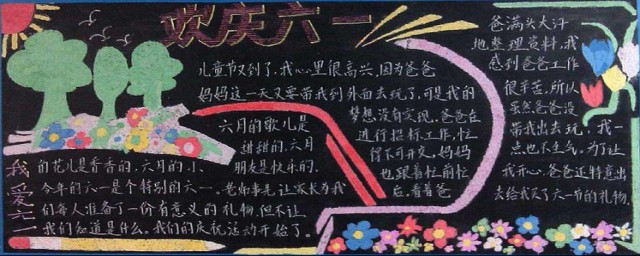 欢庆六一
儿童节又到了,我心里很高兴,因为爸爸
妈妈这一天又要带我到外面去玩了,可是我的
梦想没有实现,爸爸在
进行招标工作,忙
得不可开交。妈妈
也跟着忙前忙
后,看着爸
爸满头大汗
地整理资料,我
感到爸爸工作
很辛苦,所以
虽然爸爸没
带我出去玩,我一
点也不生气。为了让
我开心,爸爸还特意出
去给我买了六一节的礼物
我爱六一
六月的歌儿是
甜甜的,六月
的花儿是香香的,六月的小
朋友是快乐的。
今年的六一是个特别的六一。老师事先让家长为我
们每人准备了一份有意义的礼物,但不让
我们知道是什么。我们的庆祝活动开始了。